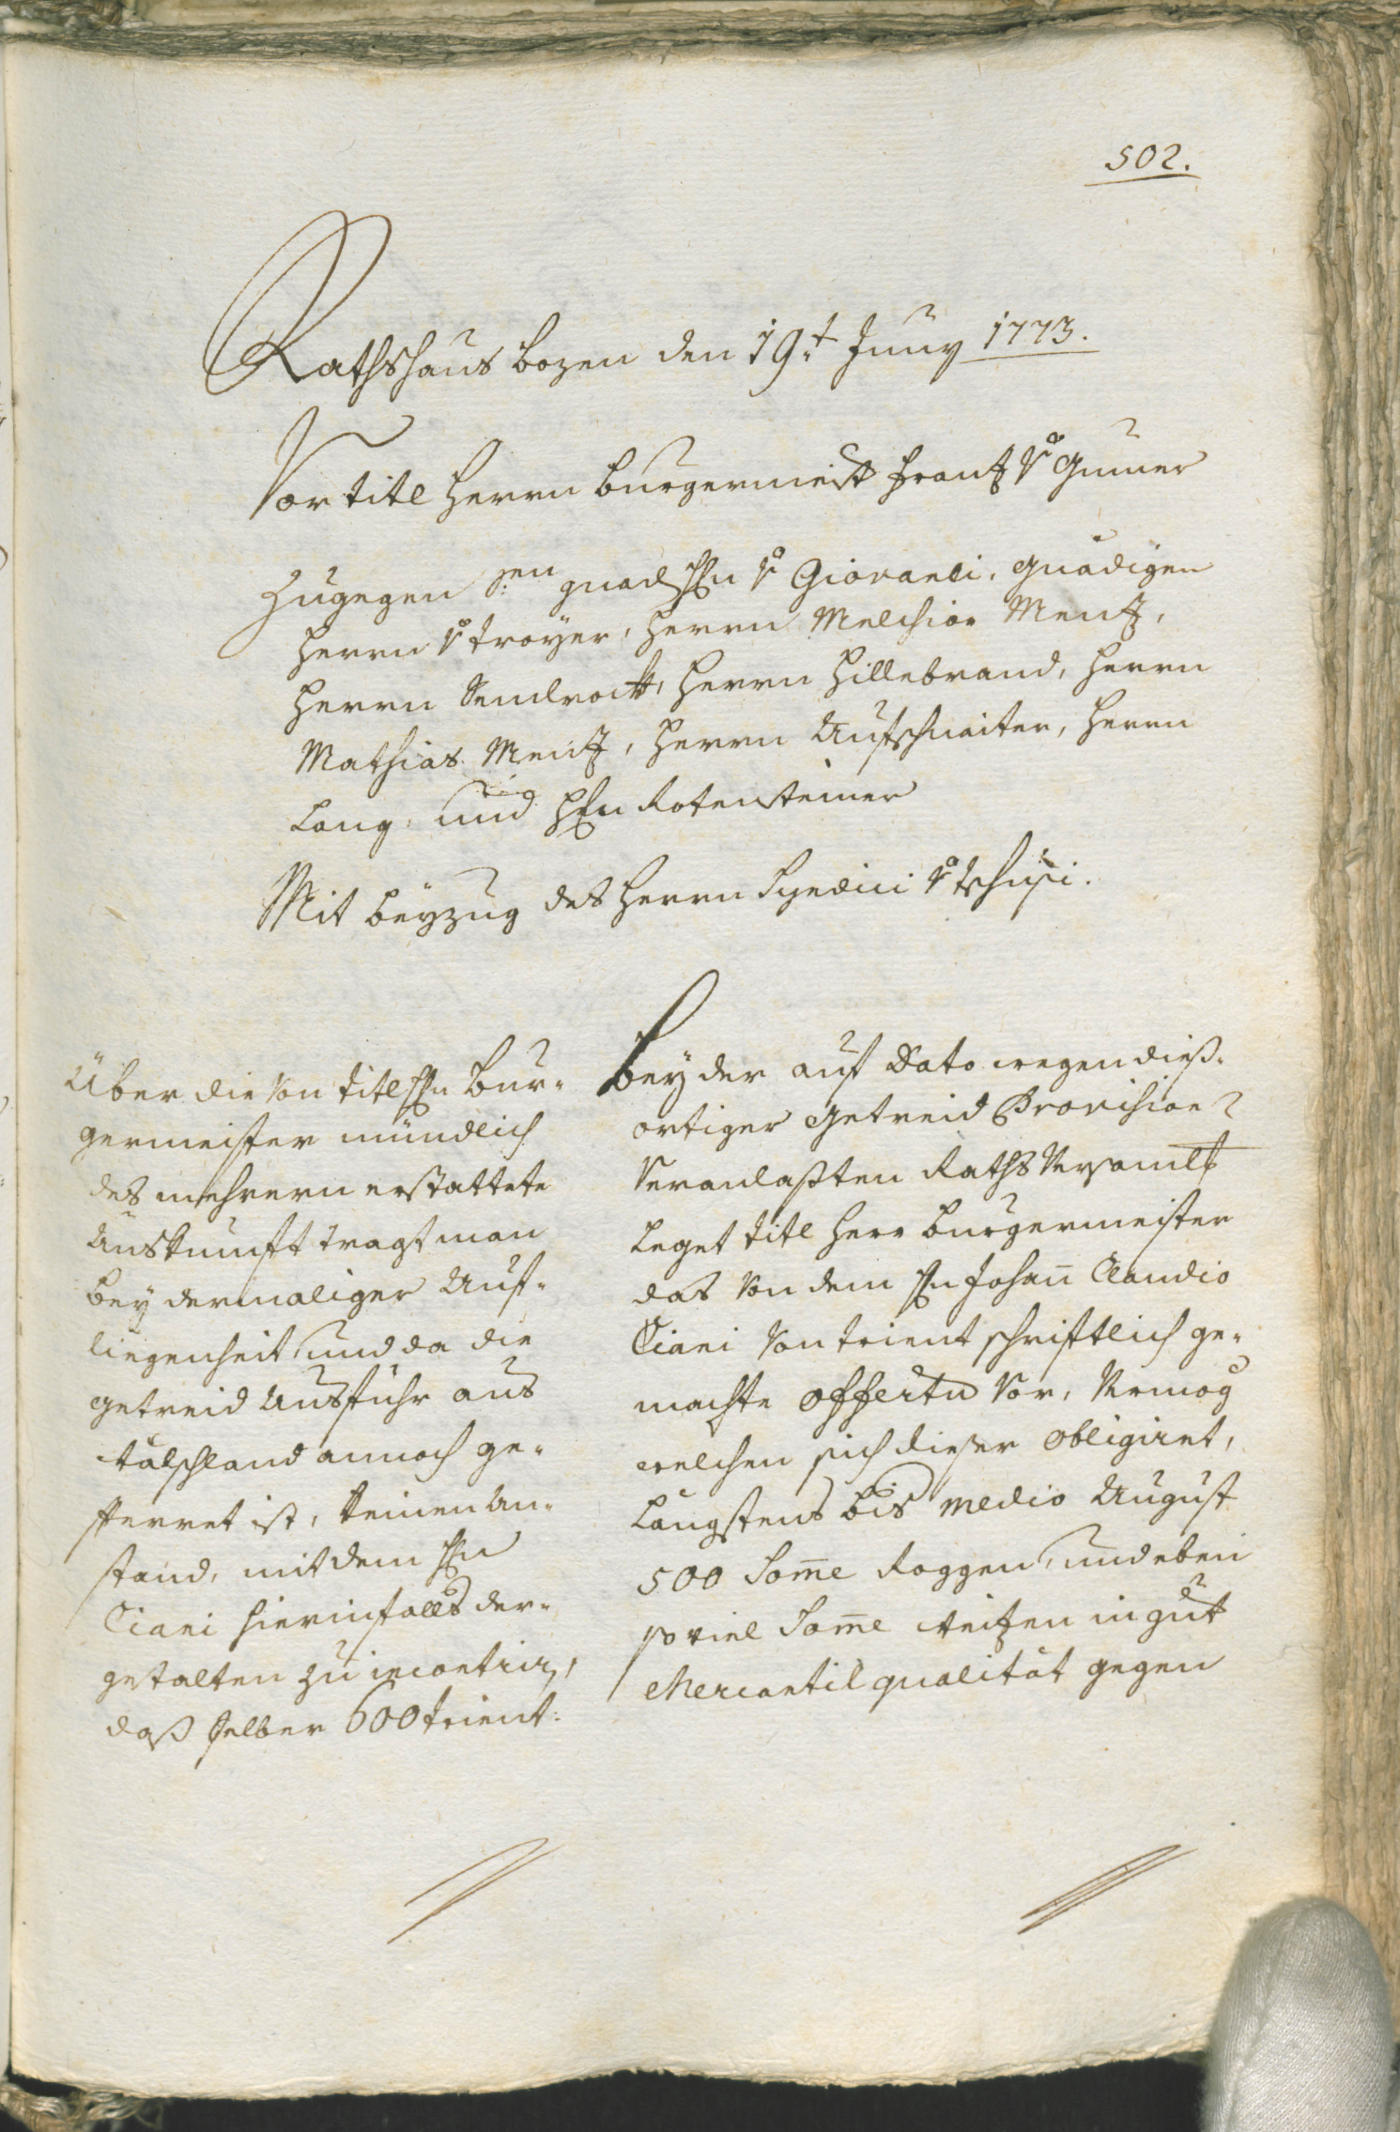 502.
Rathshaus Bozen den 19t Juny 1773.
Vor titl Herrn Burgermeist Frantz v Gumer
Zugegen Sr. gnad Hn v Giovaneli, gnädigen
Herrn v Troyer, Herrn Melchior Mentz,
Herrn Hillebrand, Herrn
Mathias Mentz, Herrn Aufschnaiter, Herrn
Lang, und Hn Rotensteiner
Mit beyzug des Herrn Syndici v Tschusi.
Über die von titl Hn Bur-
germeister mündlich
des mehrern erstattete
Auskunfft tragt man
bey dermaliger Auf-
liegenheit, und da die
getreid Ausfuhr aus
wälschland annoch ge-
sperret ist, keinen An-
stand, mit dem Hn
Ciani hierinfalls der-
gestalten zu incontrir,
daß selber 600 trient.
Bey der auf Dato wegen dieß-
ortiger getreid Provision
Veranlaßten Raths Versamlt
Leget titl Herr Burgermeister
das von dem Hn Johann Claudio
Ciani von trient schriftlich ge-
machte Offerta vor, Vermög
welchen sich dieser obligiret,
Längstens bis medio August
500 Some Roggen, und eben
so viel Some weitzen in gut
Mercantil qualität gegen